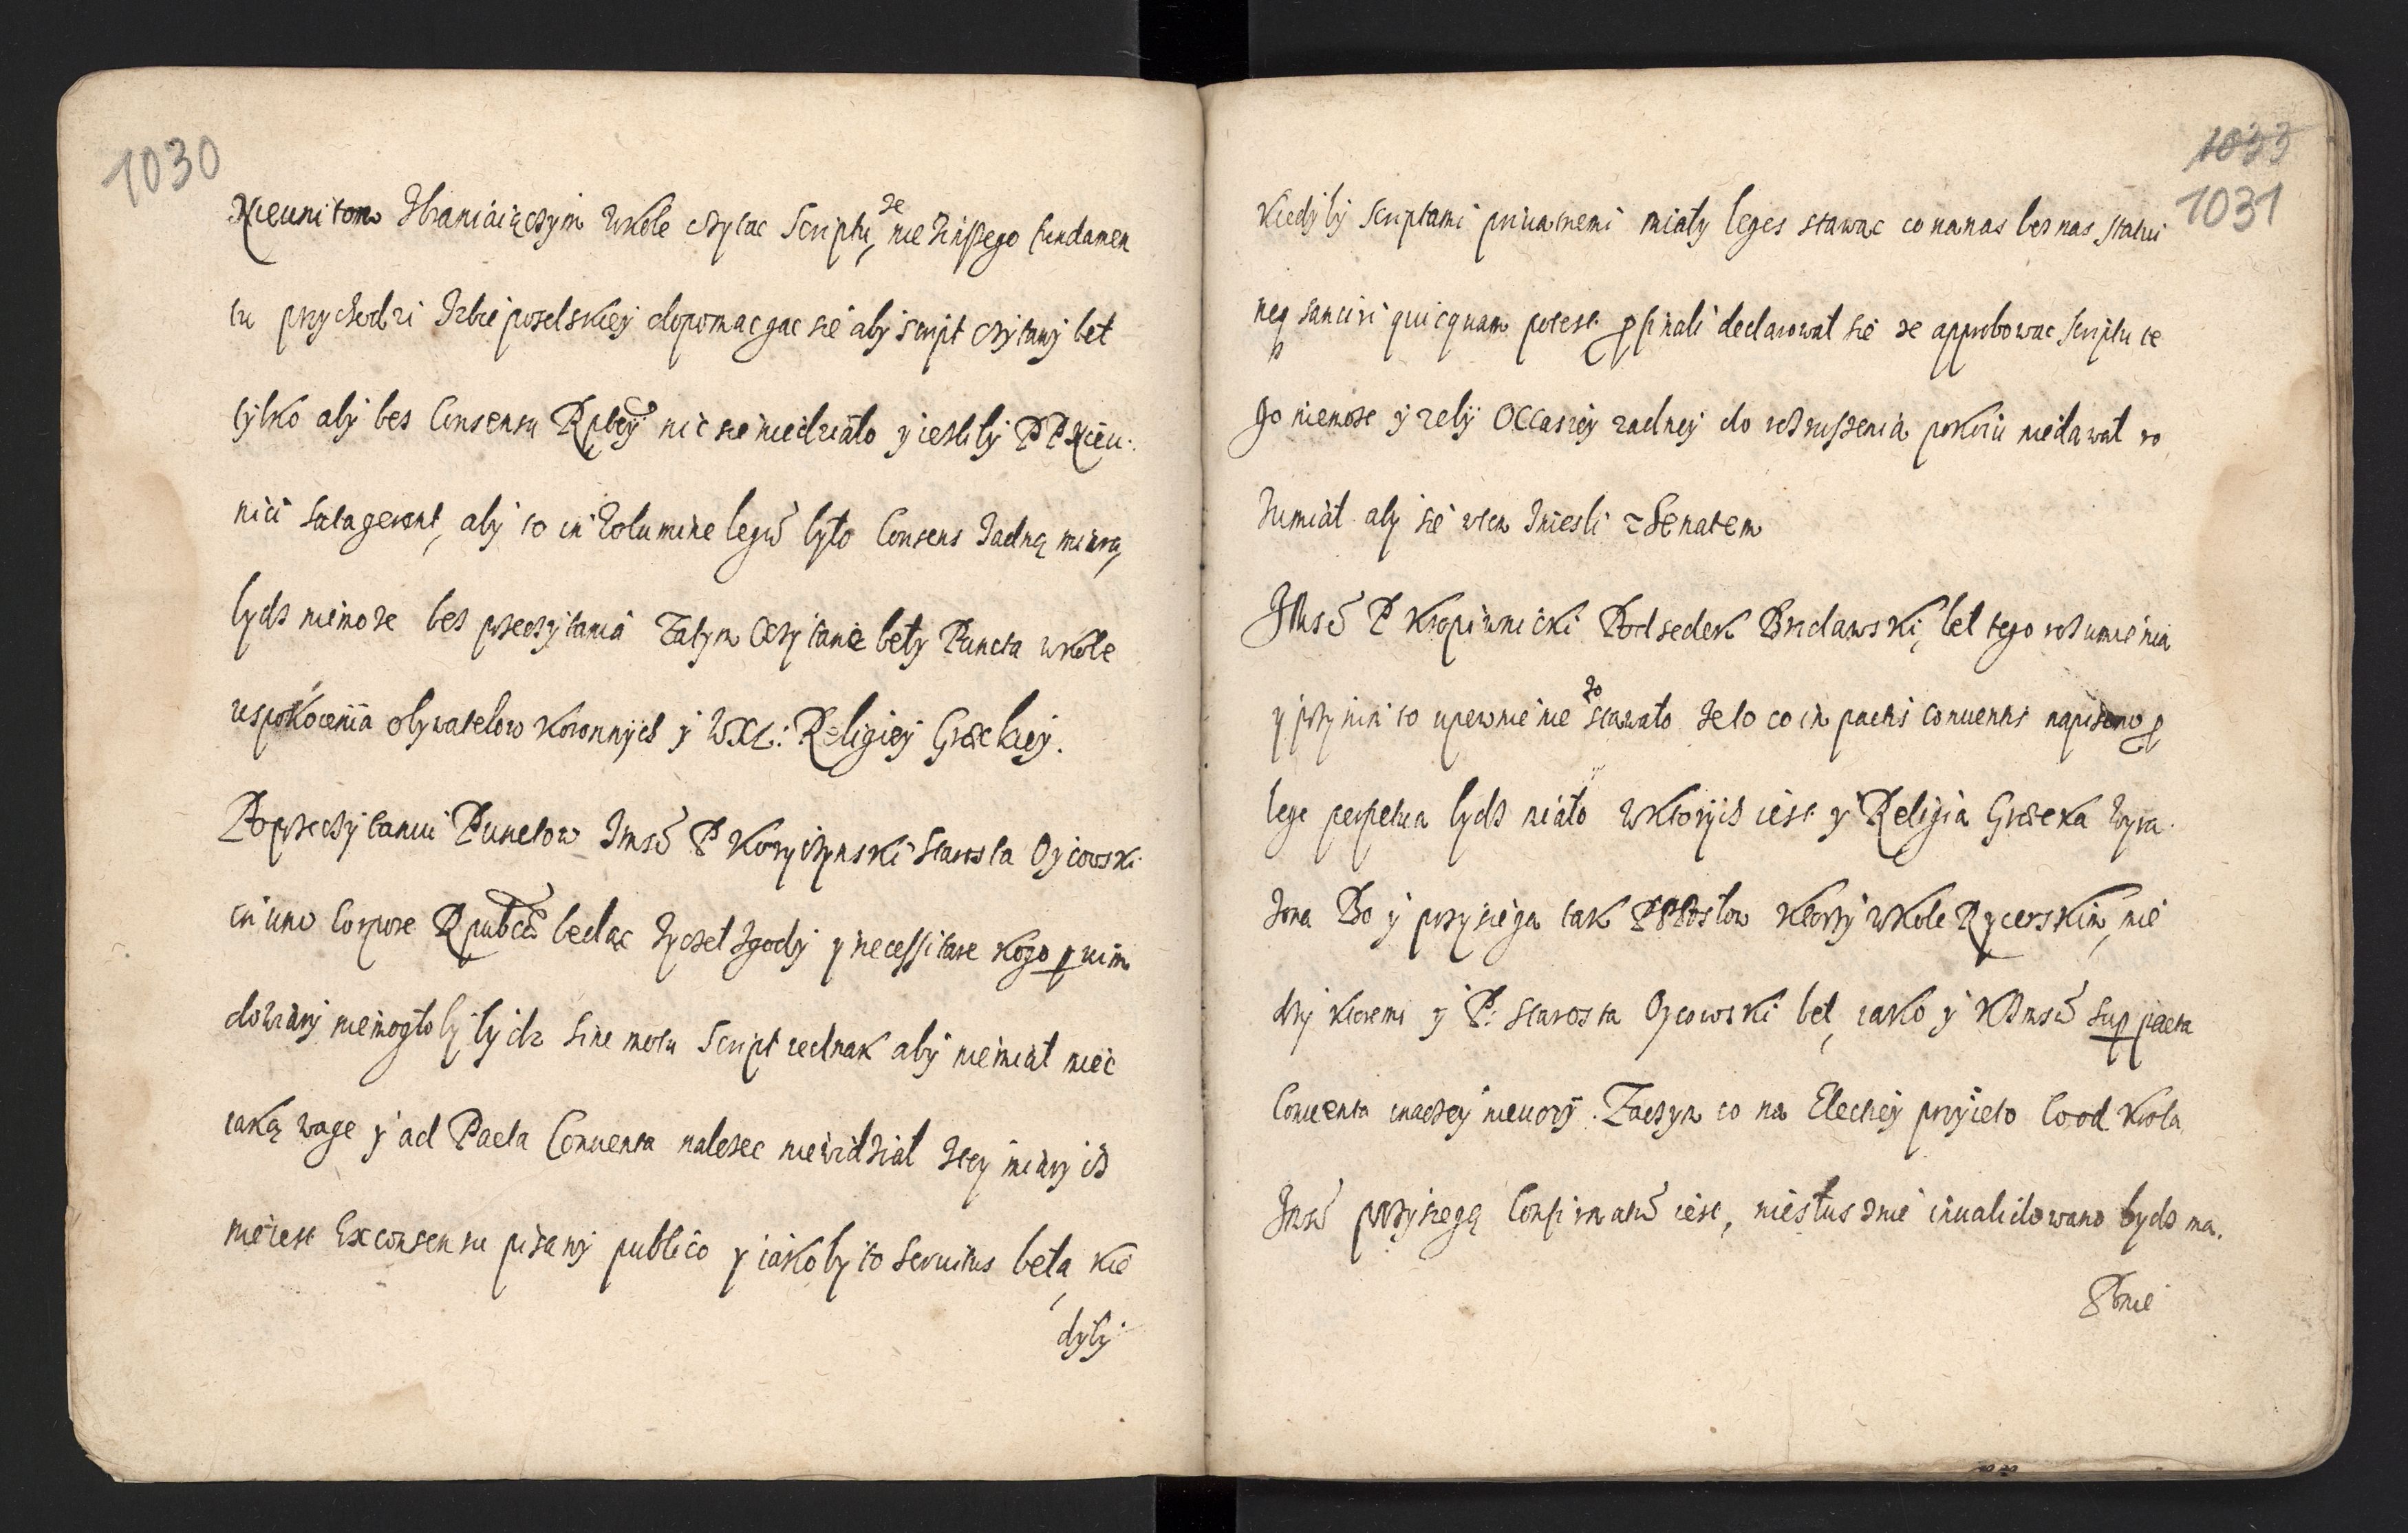 1030
Nieunitom Zbraniaiączym wkole czytac Scriptu, ze nie Zinszego fundamen
tu przychodzi Izbie poselskiey dopomacgac sie aby script czytany beł
tylko aby bes Consensu Rptey nic sie niedziało y iesliby PP Nieu.
nici satagerent, aby to in Volumine legũ było Consens Zadną miarą,
bydz niemoze bes przeczytania Zatym Czytanie beły Puncta wkole
uspokoienia obywatelow Koronnych y WXL: Religiey Græckiey.
Poprzeczytaniu Punctow Jmsc P Koryczynski Starosta Oycowski
in uno Corpore Rpubcæ bedąc Zyczeł Zgody y necessitare kogo p vim
dowiary niemogłoby bydz sine motu Script iednak aby niemiał miec
iaką wage y ad Pacta Conventa nalezec niewidział Ztey miary iz
nieiest Ex consensu pisany publico y iakoby to servitus beła, kie
dyby
1033
1031
Kiedyby scriptami privatnemi miały leges stawac co nanas bez nas statui
neq sanciri quicquam potest p finali declarował sie ze approbowac scriptu te
go niemoze y zeby Occasiey zadney do wzruszenia pokoiu niedawał ro
zumiał aby sie wten Zniesli z Senatem
JMsc P Kropiwnicki Podsedek Bracławski, beł tego rozumienia
y przy nim to upewnienie zostawało ze to co in pactis conventis napisano p
lege perpetua bydz miało w ktorych iest y Religia Græcka wyra.
zona Bo y przysiega tak PP Posłow ktorzy w Kole Rycerskim, mie
dzy ktoremi y P: Starosta Oycowski beł, iako y KJmsc sup pacta
Conventa inaczey nieuczy. Zaczym co na Electiey przyieto Co od Krola
Jmsc przysiegą Confirmatũ iest, niesłusznie invalidowano bydz ma.